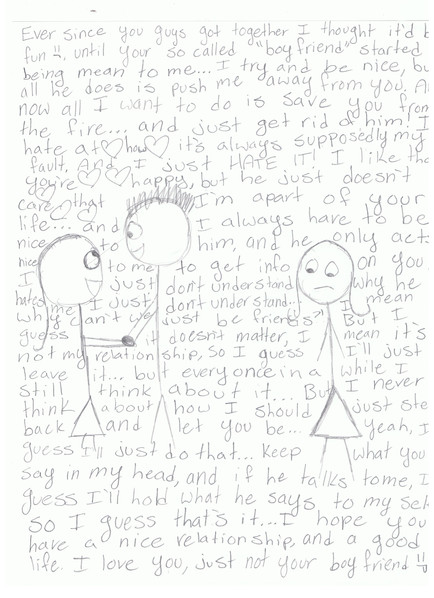 Ever since you guys got together I thought it'd b
fun !!, until your so called "boyfriend" started
being mean to me... I try and be nice, bu
all he does is push me away from you. A
now all I want to do is save you from
the fire... and just get rid of him! I
hate at how it's always supposedly my
fault, And I just HATE IT! I like tha
you're happy, but he just doesn't
care that I'm apart of your
life... and I always have to be
nice to him, and he only act
nice to me to get info on you
I just don't understand why he
hates me I just don't understand... I mean
why can't we just be friends?! But I
guess it doesn't matter, I mean it's
not my relation ship, so I guess I'll just
leave it... but every once in a while I
still think about it... But I never
think about how I should just ste
back and let you be... Yeah, I
guess I'll just do that... keep what you
say in my head, and if he talks to me, I
guess I'll hold what he says, to my sel
so I guess that's it... I hope you
have a nice relationship, and a good
life. I love you, just not your boyfriend !!